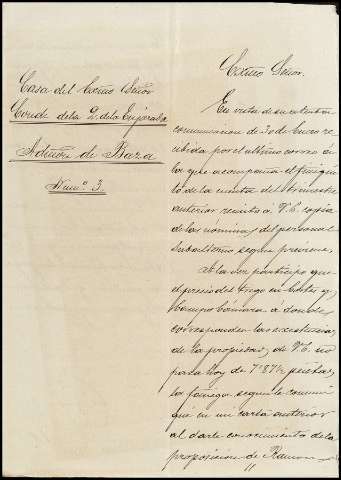 Casa del Excmo Señor
Conde de la Q. de la Enjarada
Admon de Baza
Num.º 3.
Excmo Señor.
En vista de su atenta
comunicacion de 30 de Enero re-
cibida por el ultimo correo á
la que acompaña el finiqui-
to de la cuenta del trimestre
anterior remito á V.E. copia
de las nóminas del personal
subalterno segun previene.
A la vez participo que
el precio del trigo en
y
Campo Cámara á donde
corresponden las existencias
de la propiedad de V.E. no
pasa hoy de 7'87½ pesetas
la fanega segun le comuni-
qué en mi carta anterior
al darle conocimiento de la
proposicion de Ramon